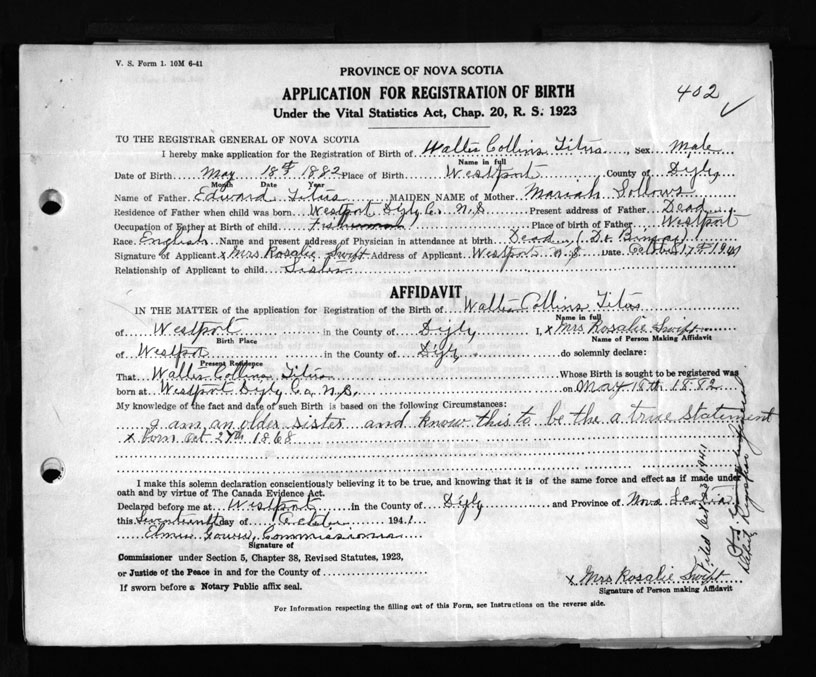 V. S. Form 1. 10M 6-41
PROVINCE OF NOVA SCOTIA
APPLICATION FOR REGISTRATION OF BIRTH
402 ✓
Under the Vital Statistics Act, Chap. 20, R. S. 1923
TO THE REGISTRAR GENERAL OF NOVA SCOTIA
I hereby make application for the Registration of Birth of Walter Collins Titus, Sex Male
Name in full
Date of Birth May 18th 1882 Place of Birth Westport County of Digby
Month Date Year
Name of Father Edward Titus MAIDEN NAME of Mother Mariah Sollows
Residence of Father when child was born Westport Digby Co. N.S Present address of Father Dead
Occupation of Father at Birth of child Fisherman Place of birth of Father Westport
Race English Name and present address of Physician in attendance at birth Dead (Dr.
Signature of Applicant x Mrs Rosalie Swift Address of Applicant Westport N.S Date October 17th 1941
Relationship of Applicant to child Sister
AFFIDAVIT
IN THE MATTER of the application for Registration of the Birth of Walter Collins Titus
Name in full
of Westport in the County of Digby I, x Mrs Rosalie Swift
Birth Place Name of Person Making Affidavit
of Westport in the County of Digby do solemnly declare:
Present Residence
That Walter Collins Titus Whose Birth is sought to be registered was
born at Westport Digby Co. N.S. on May 18th 1882
My knowledge of the fact and date of such Birth is based on the following Circumstances:
I am an older sister and know this to be the a true statement
x born Oct 27th 1868
I make this solemn declaration conscientiously believing it to be true, and knowing that it is of the same force and effect as if made under
oath and by virtue of The Canada Evidence Act.
Declared before me at Westport in the County of Digby and Province of Nova Scotia
this Seventeenth day of October 1941
Elmer Commissioner
Signature of
Commissioner under Section 5, Chapter 38, Revised Statutes, 1923,
or Justice of the Peace in and for the County of
x Mrs Rosalie Swift
If sworn before a Notary Public affix seal.
Signature of Person making Affidavit
For Information respecting the filling out of this Form, see Instructions on the reverse side.
Filed Oct 23 1941
Registrar